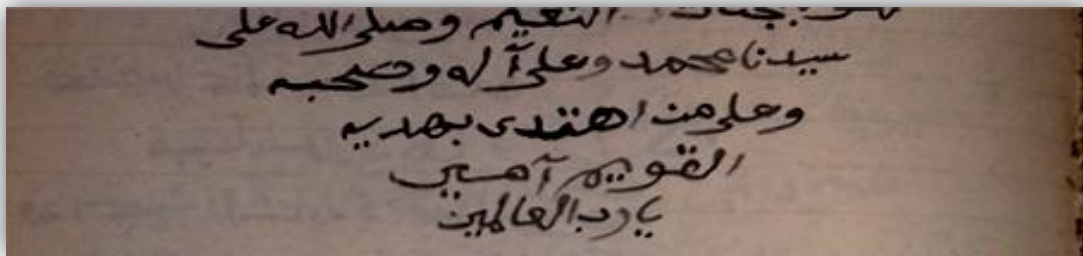 بجنات النعيم وصلى الله على
سيدنا محمد وعلى آله وصحبه
وعلى من اهتدى بهديه
القويم آمين
يارب العالمين